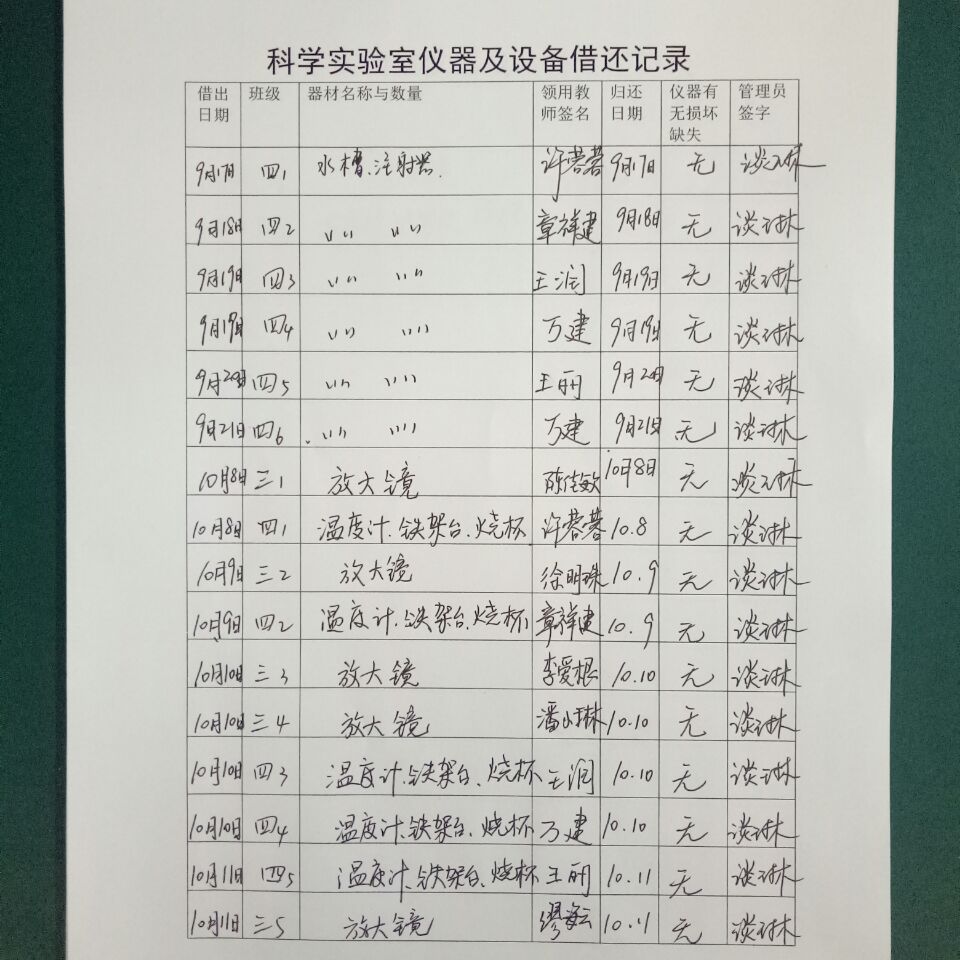 科学实验室仪器及设备借还记录
借出日期 班级 器材名称与数量 领用教师签名 归还日期 仪器有无损坏缺失 管理员签字
9月17日 四1 水槽、注射器. 许蓉蓉 9月17日 无 谈琳
9月18日 四2 〃 〃 章祥建 9月18日 无 谈琳
9月19日 四3 〃 〃 王润 9月19日 无 谈琳
9月19日 四4 〃 〃 万建 9月19日 无 谈琳
9月20日 四5 〃 〃 王丽 9月20日 无 谈琳
9月21日 四6 〃 〃 万建 9月21日 无 谈琳
10月8日 三1 放大镜 陈佳敏 10月8日 无 谈琳
10月8日 四1 温度计、铁架台、烧杯 许蓉蓉 10.8 无 谈琳
10月9日 三2 放大镜 徐明珠 10.9 无 谈琳
10月9日 四2 温度计、铁架台、烧杯 章祥建 10.9 无 谈琳
10月10日 三3 放大镜 李爱根 10.10 无 谈琳
10月10日 三4 放大镜 潘 10.10 无 谈琳
10月10日 四3 温度计、铁架台、烧杯 王润 10.10 无 谈琳
10月10日 四4 温度计、铁架台、烧杯 万建 10.10 无 谈琳
10月11日 四5 温度计、铁架台、烧杯 王丽 10.11 无 谈琳
10月11日 三5 放大镜 缪 10.11 无 谈琳